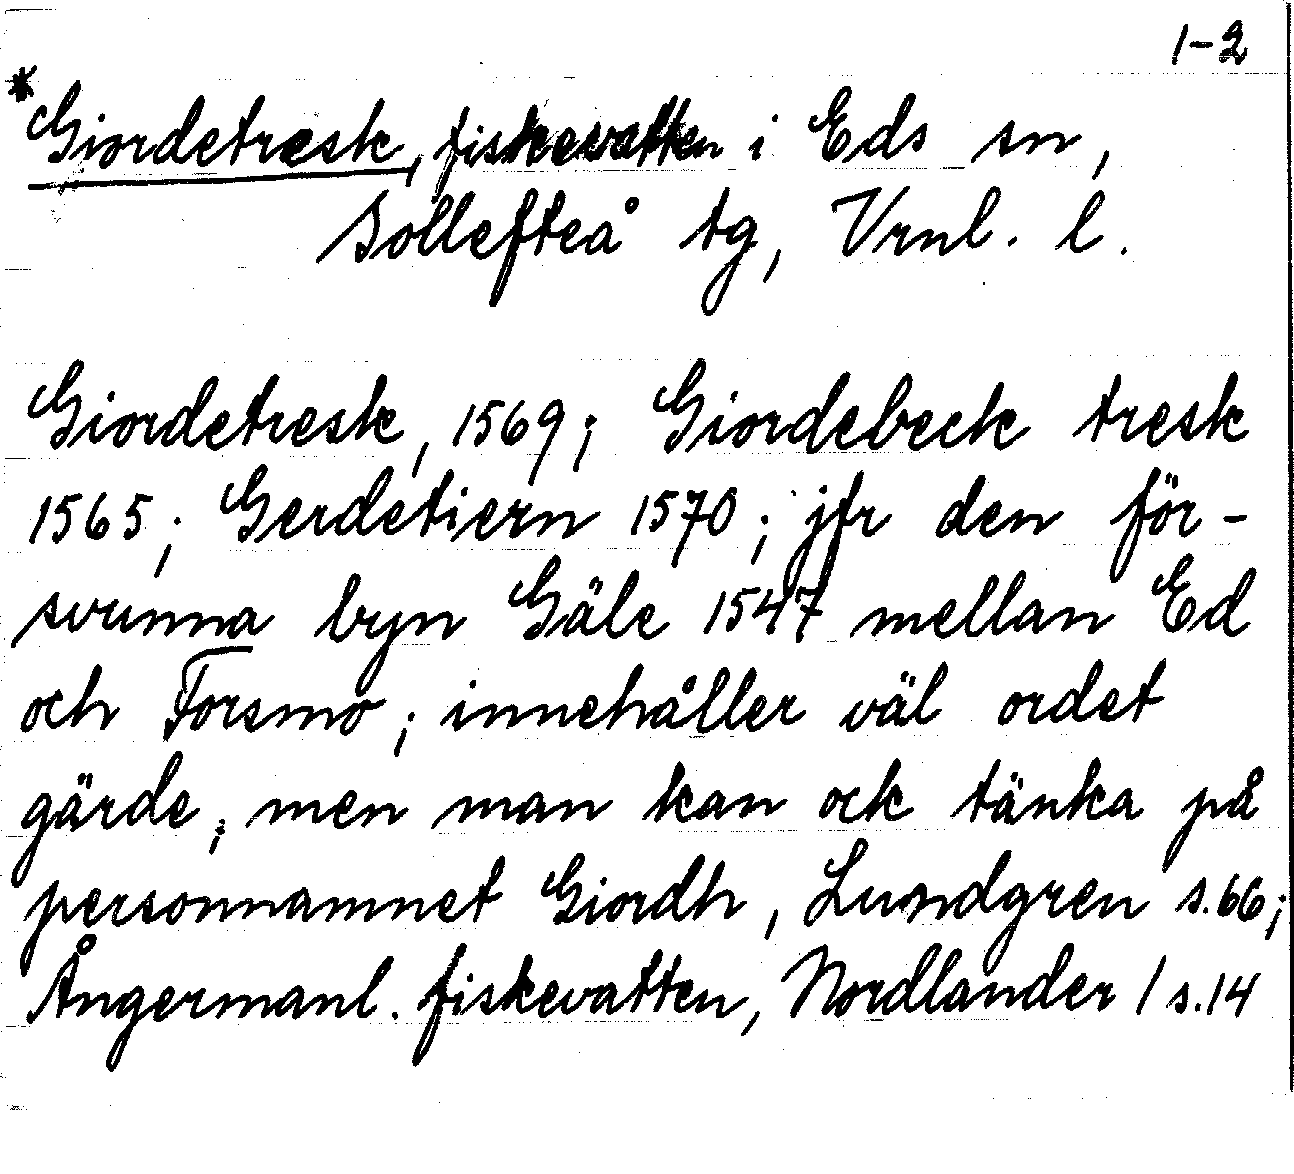 1-2
*Giordetresk, fiskevatten i Eds sn,
Sollefteå tg, Vrnl. l.
Giordetresk, 1569; Giordebeck tresk
1565; Gerdetiern 1570; jfr den för-
svunna byn Gäle 1547 mellan Ed
och Forsmo; innehåller väl ordet
gärde; men man kan ock tänka på
personnamnet Giordh, Lundgren s.66;
Ångermanl. fiskevatten, Nordlander 1 s.14